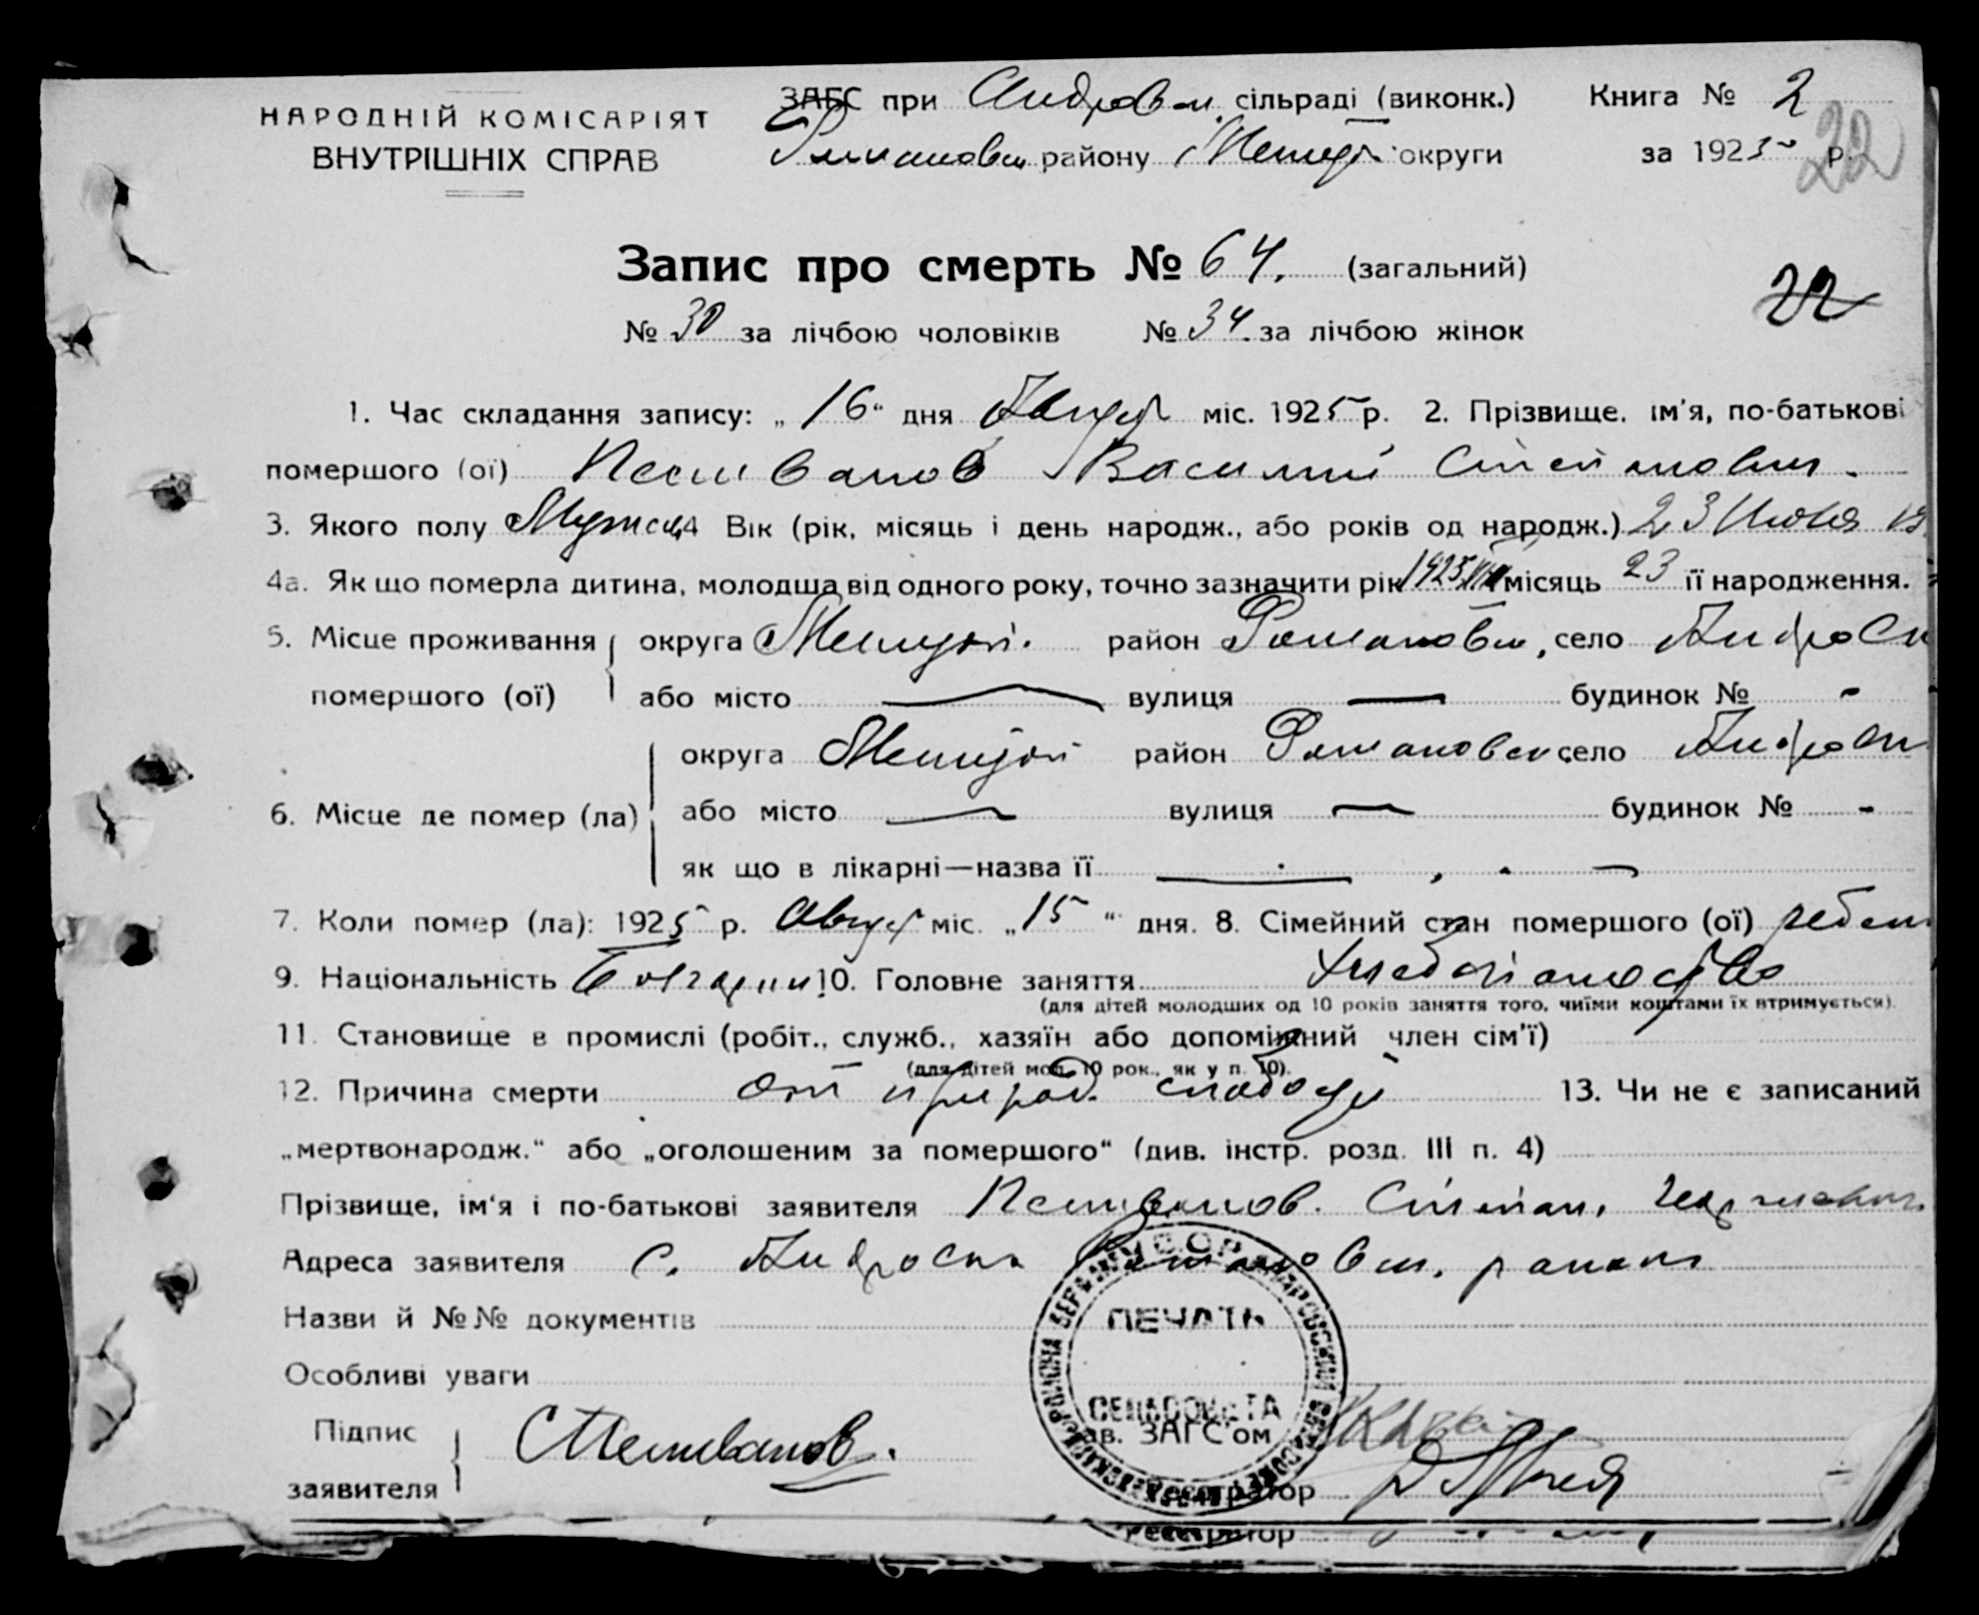 НАРОДНІЙ КОМІСАРІЯТ
ВНУТРІШНІХ СПРАВ
ЗАГС при Андровск. сільраді (виконк.)
Романовск району Мелитоп округи
Книга № 2
за 1925 р.
22
Запис про смерть № 64. (загальний)
22
№ 30 за лічбою чоловіків № 34. за лічбою жінок
1. Час складання запису: „16“ дня Август міс. 1925 р. 2. Прізвище, ім'я, по-батькові
помершого (ої) Пеливанов Василий Степанович.
3. Якого полу Мужск 4 Вік (рік, місяць і день народж., або років од народж.) 23 Июля 19
4а. Як що померла дитина, молодша від одного року, точно зазначити рік 1925 місяць 23 її народження.
5. Місце проживання округа Мелитоп. район Романовск, село Андровк
помершого (ої) або місто — вулиця — будинок № -
округа Мелитоп район Романовск село Андровк
6. Місце де помер (ла) або місто — вулиця — будинок № -
як що в лікарні—назва її
7. Коли помер (ла): 1925 р. Август міс. „15“ дня. 8. Сімейний стан помершого (ої) ребен
9. Національність Болгарин 10. Головне заняття хлебопашество
(для дітей молодших од 10 років заняття того, чиїми коштами їх втримується).
11. Становище в промислі (робіт., служб., хазяїн або допоміжний член сім'ї)
(для дітей мол. 10 рок., як у п. 10).
12. Причина смерти от природ. слабости 13. Чи не є записаний
„мертвонародж.“ або „оголошеним за помершого“ (див. інстр. розд. III п. 4)
Прізвище, ім'я і по-батькові заявителя Пеливанов. Степан.
Адреса заявителя с. Андровка Романовск. района
Назви й №№ документів
Особливі уваги
Підпис
заявителя
С Пеливанов.
ПЕЧАТЬ
СЕЛЬСОВЕТА
Зав. ЗАГС'ом
Реєстратор
Реєстратор